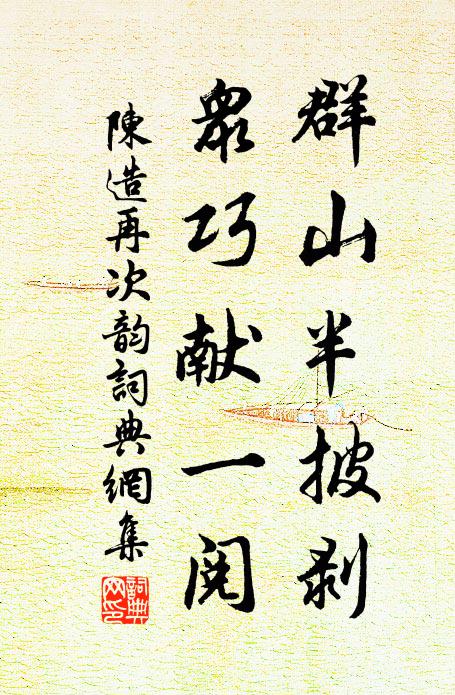 群山半披剥
眾巧献一閱
陳造再次韵詞典網集
詞典網印